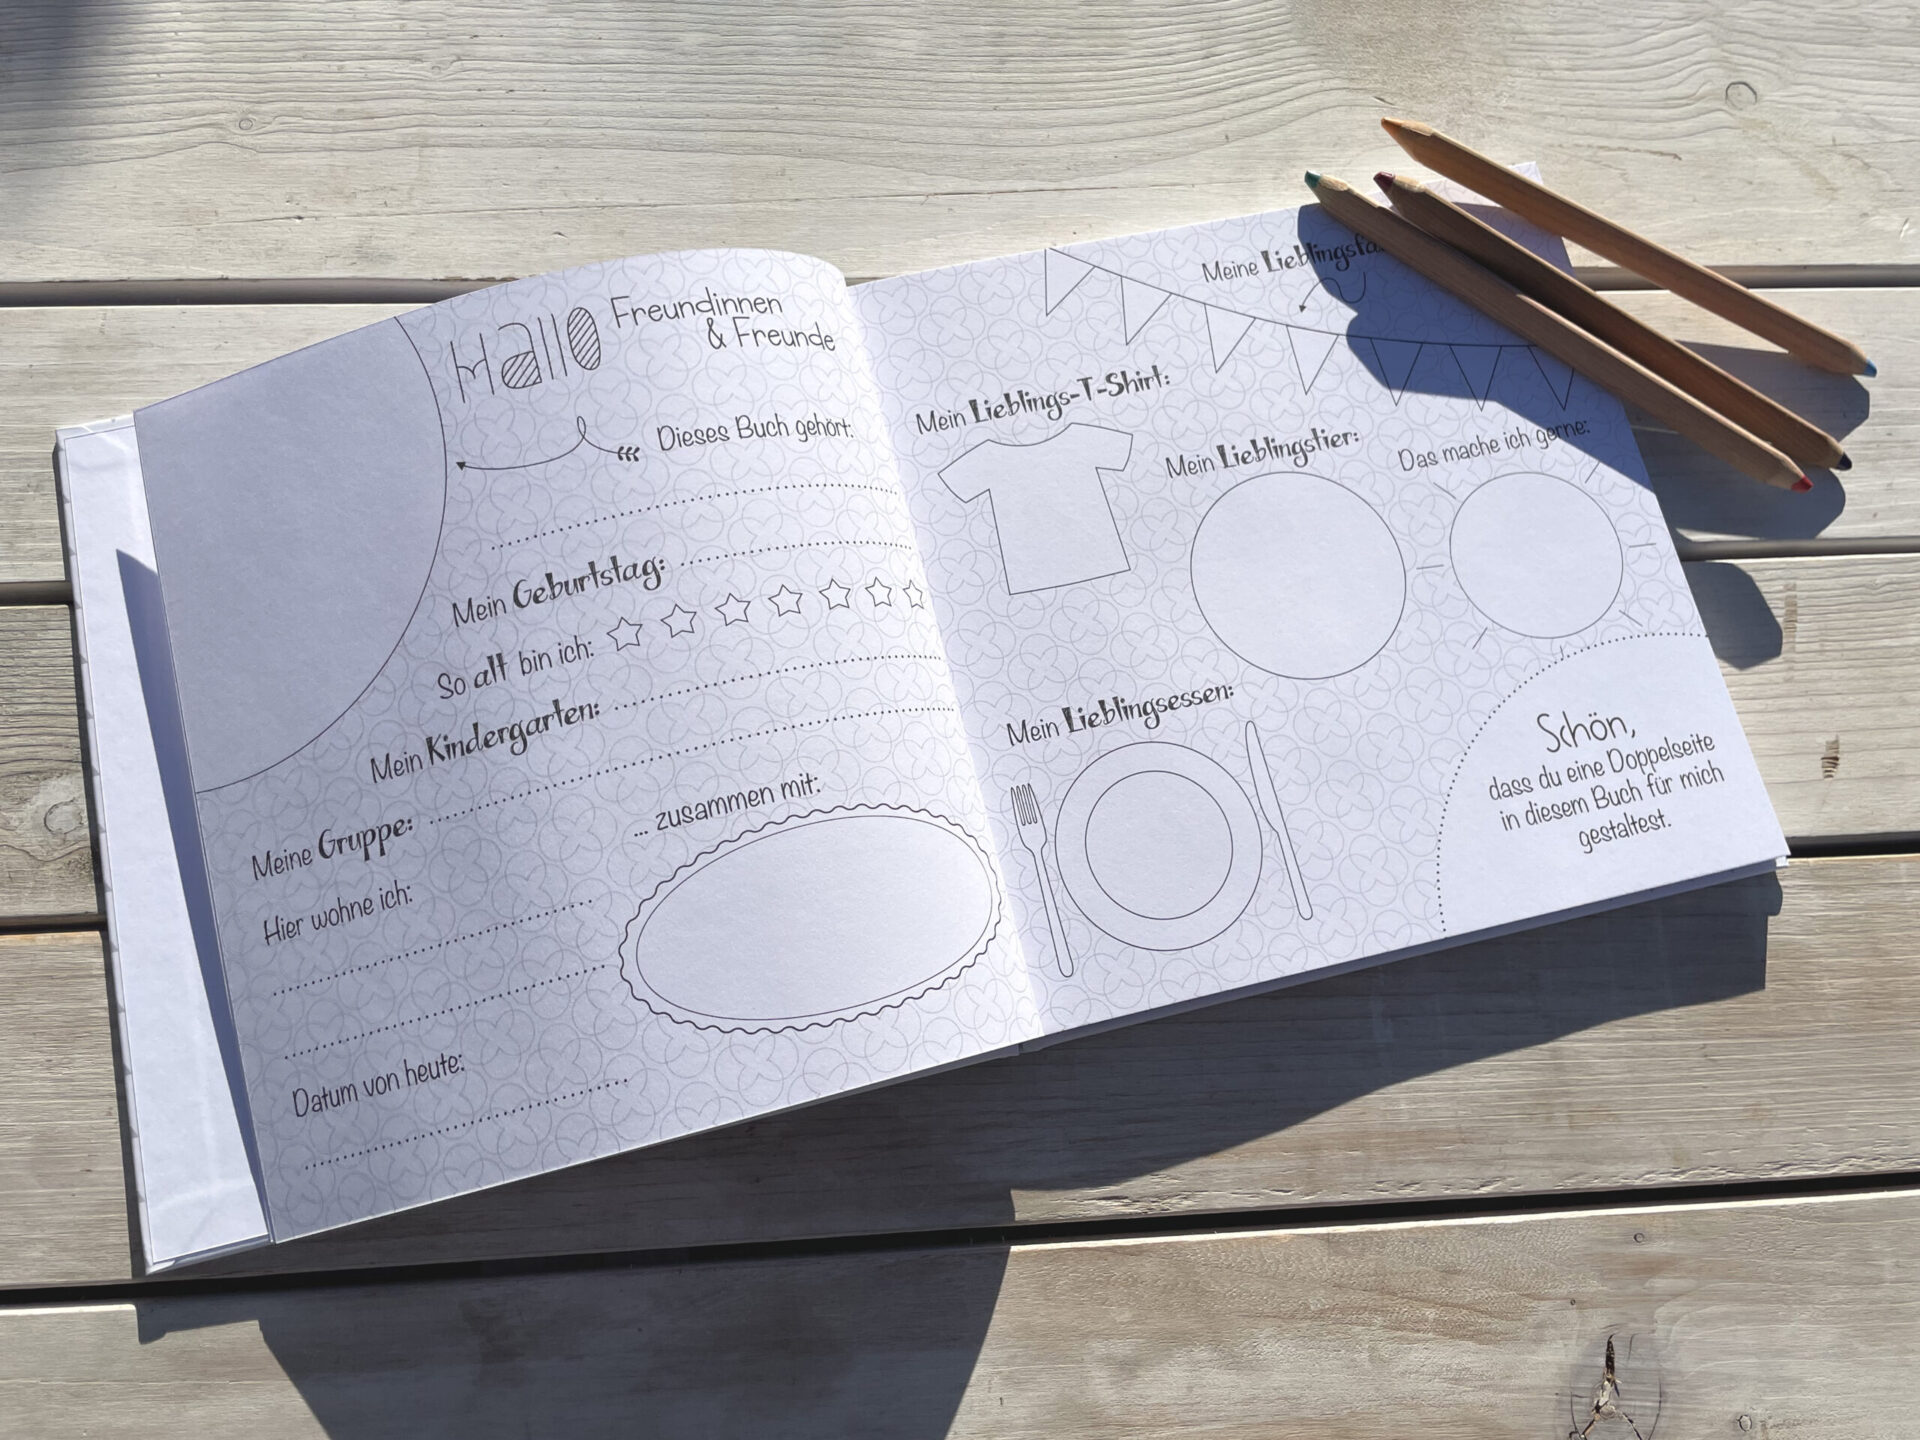 Hallo Freundinnen
& Freunde
Dieses Buch gehört:
Mein Geburtstag:
So alt bin ich:
Mein Kindergarten:
Meine Gruppe:
... zusammen mit:
Hier wohne ich:
Datum von heute:
Meine
Mein Lieblings-T-Shirt:
Mein Lieblingstier:
Das mache ich gerne:
Mein Lieblingsessen:
Schön,
dass du eine Doppelseite
in diesem Buch für mich
gestaltest.